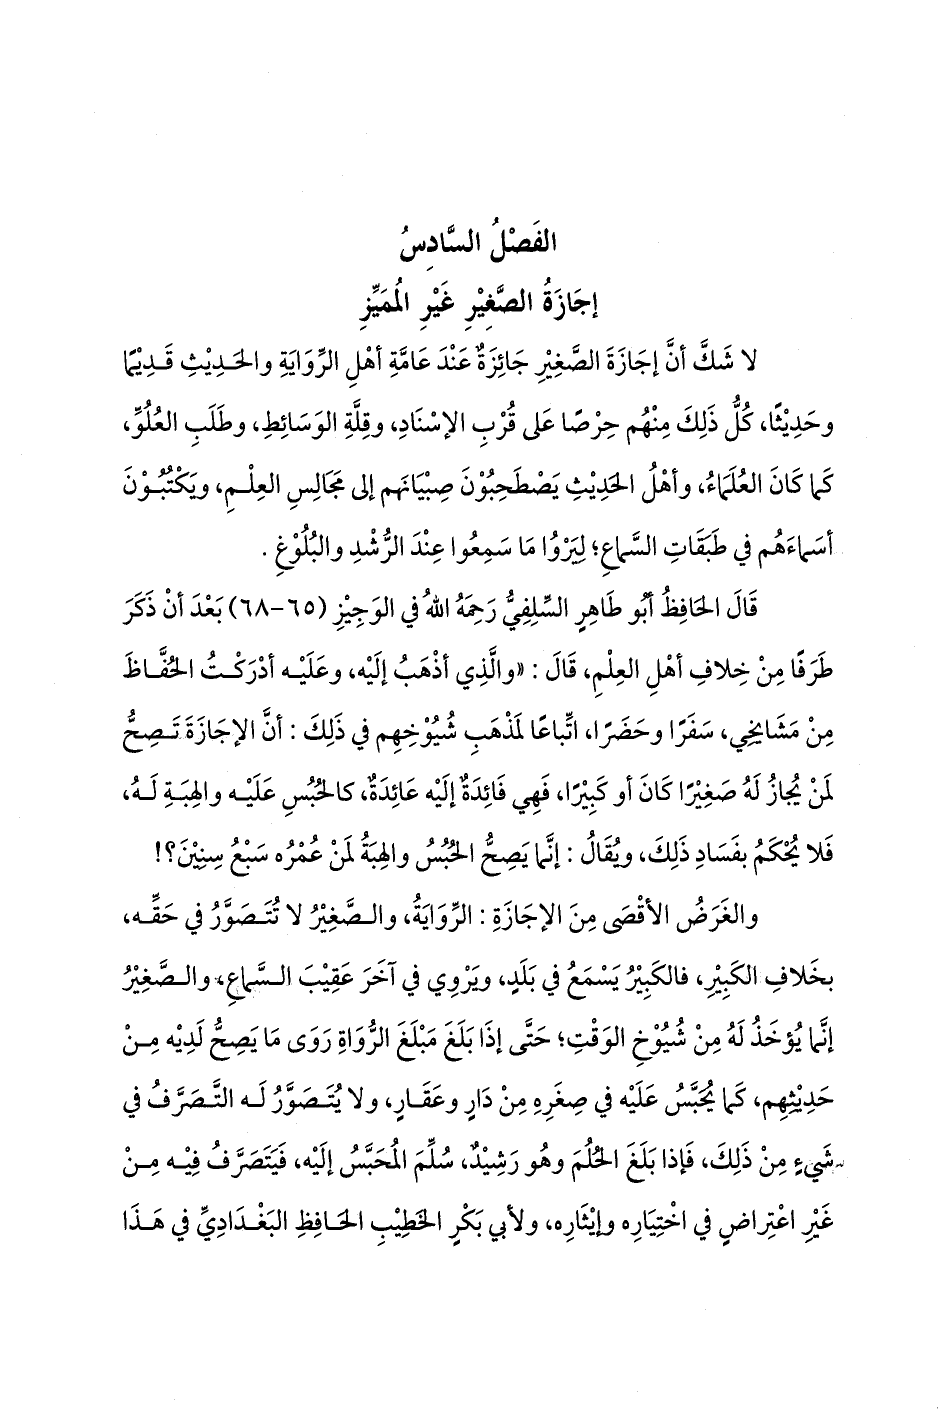 الفَصْلُ السَّادِسُ
إجَازَةُ الصَّغِيْرِ غَيْرِ المُمَيِّزِ
لا شَكَّ أنَّ إجَازَةَ الصَّغِيْرِ جَائِزَةٌ عَنْدَ عَامَّةِ أهْلِ الرِّوَايَةِ والحَدِيْثِ قَدِيْمًا
وحَدِيْثًا، كُلُّ ذَلِكَ مِنْهُم حِرْصًا عَلى قُرْبِ الإسْنَادِ، وقِلَّةِ الوَسَائِطِ، وطَلَبِ العُلُوِّ،
كَمَا كَانَ العُلَمَاءُ، وأهْلُ الحَدِيْثِ يَصْطَحِبُوْنَ صِبْيَانَهم إلى مَجَالِسِ العِلْمِ، ويَكْتُبُوْنَ
أسْمَاءَهُم في طَبَقَاتِ السَّمَاعِ؛ لِيَرْوُا مَا سَمِعُوا عِنْدَ الرُّشْدِ والبُلُوْغِ .
قَالَ الحَافِظُ أبُو طَاهِرٍ السِّلِفِيُّ رَحِمَهُ اللهُ في الوَجِيْزِ (٦٥-٦٨) بَعْدَ أنْ ذَكَرَ
طَرَفًا مِنْ خِلافِ أهْلِ العِلْمِ، قَالَ : «والَّذِي أذْهَبُ إلَيْه، وعَلَيْه أدْرَكْتُ الحُفَّاظَ
مِنْ مَشَايخِي، سَفَرًا وحَضَرًا، اتِّباعًا لمَذْهَبِ شُيُوْخِهِم في ذَلِكَ : أنَّ الإجَازَةَ تَصِحُّ
لمَنْ يُجازُ لَهُ صَغِيْرًا كَانَ أو كَبِيْرًا، فَهِي فَائِدَةٌ إلَيْه عَائِدَةٌ، كالحُبُسِ عَلَيْه والهِبَةِ لَهُ،
فَلا يُحْكَمُ بفَسَادِ ذَلِكَ، ويُقَالُ : إنَّمَا يَصِحُّ الحُبُسُ والهِبَةُ لمَنْ عُمْرُه سَبْعُ سِنِيْنَ؟!
والغَرَضُ الأقْصَى مِنَ الإجَازَةِ : الرِّوَايَةُ، والصَّغِيْرُ لا تُتَصَوَّرُ في حَقِّه،
بخَلافِ الكَبِيْرِ، فالكَبِيْرُ يَسْمَعُ في بَلَدٍ، ويَرْوِي في آخَرَ عَقِيْبَ السَّمَاعِ، والصَّغِيْرُ
إنَّمَا يُؤخَذُ لَهُ مِنْ شُيُوْخِ الوَقْتِ؛ حَتَّى إذَا بَلَغَ مَبْلَغَ الرُّوَاةِ رَوَى مَا يَصِحُّ لَدِيْه مِنْ
حَدِيْثِهِم، كَمَا يُحَبَّسُ عَلَيْه في صِغَرِهِ مِنْ دَارٍ وعَقَارٍ، ولا يُتَصَوَّرُ لَه التَّصَرَّفُ في
شَيءٍ مِنْ ذَلِكَ، فَإذا بَلَغَ الحُلُمَ وهُو رَشِيْدٌ، سُلِّمَ المُحَبَّسُ إلَيْه، فَيَتَصَرَّفُ فِيْه مِنْ
غَيْرِ اعْتِراضٍ في اخْتِيَارِه وإيْثَارِه، ولأبي بَكْرٍ الخَطِيْبِ الحَافِظِ البَغْدَادِيِّ في هَذَا